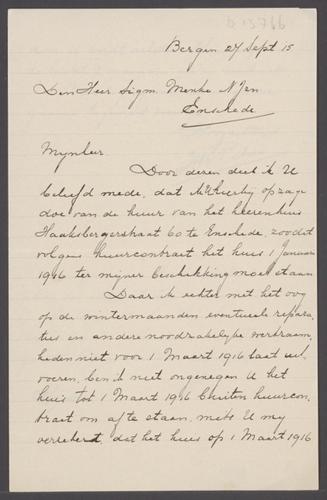 b 15766
Bergen 27 Sept 15
Den Heer Sigm. Menko NJzn
Enschede
Mynheer
Door dezen deel ik U
beleefd mede, dat ik U hierby opzage
doe van de huur van het heerenhuis
Haaksbergerstraat 60 te Enschede, zoodat
volgens huurcontract het huis 1 Januari
1916 te mijner beschikking moet staan
Daar ik echter met het oog
op de wintermaanden eventueele repara
ties en andere noodzakelyke werkzaam
heden niet voor 1 Maart 1916 laat uit
voeren, ben ik niet ongenegen U het
huis tot 1 Maart 1916 buiten huurcon
tract om af te staan, mits U my
verzekert, dat het huis op 1 Maart 1916